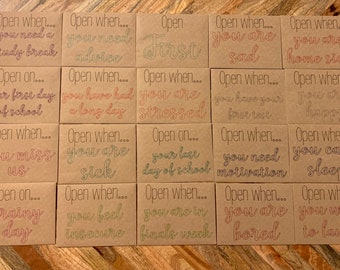 Open when...
you need a
study break
Open when...
you need
advice
Open
First
Open when...
you are
sad
Open when...
you are
home sick
Open on...
your first day
of school
Open when...
you have had
a long day
Open when...
you are
stressed
Open when...
you have your
first test
Open when...
you are
happy
Open when...
you miss
us
Open when...
you are
sick
Open on...
your last
day of school
Open when...
you need
motivation
Open when...
you can't
sleep
Open on...
rainy
day
Open when...
you feel
insecure
Open when...
you are in
finals week
Open when...
you are
bored
Open when...
you
to